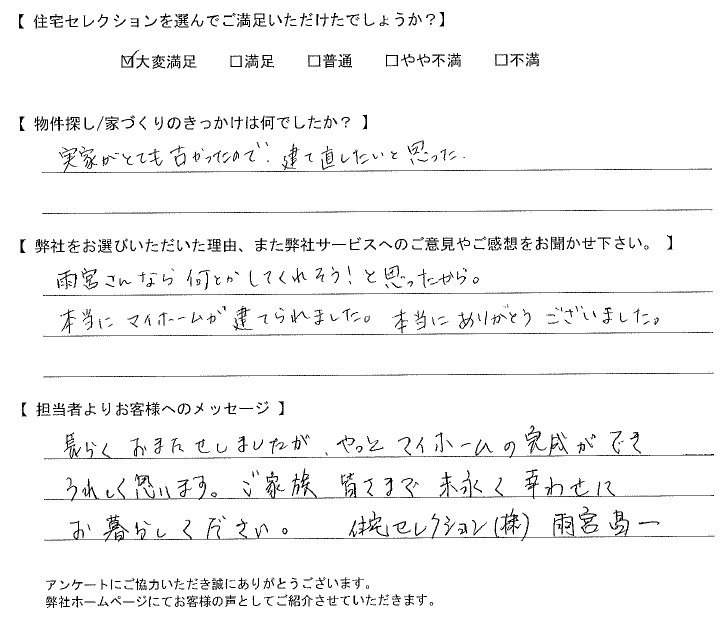 【 住宅セレクションを選んでご満足いただけたでしょうか？】
☑大変満足 □満足 □普通 □やや不満 □不満
【 物件探し/家づくりのきっかけは何でしたか？ 】
実家がとても古かったので、建て直したいと思った.
【 弊社をお選びいただいた理由、また弊社サービスへのご意見やご感想をお聞かせ下さい。 】
雨宮さんなら何とかしてくれそう！と思ったから。
本当にマイホームが建てられました。本当にありがとうございました。
【 担当者よりお客様へのメッセージ 】
長らくおまたせしましたが、やっとマイホームの完成ができ
うれしく思います。ご家族皆さまで末永く幸わせに
お暮らしください。 住宅セレクション(株) 雨宮高一
アンケートにご協力いただき誠にありがとうございます。
弊社ホームページにてお客様の声としてご紹介させていただきます。